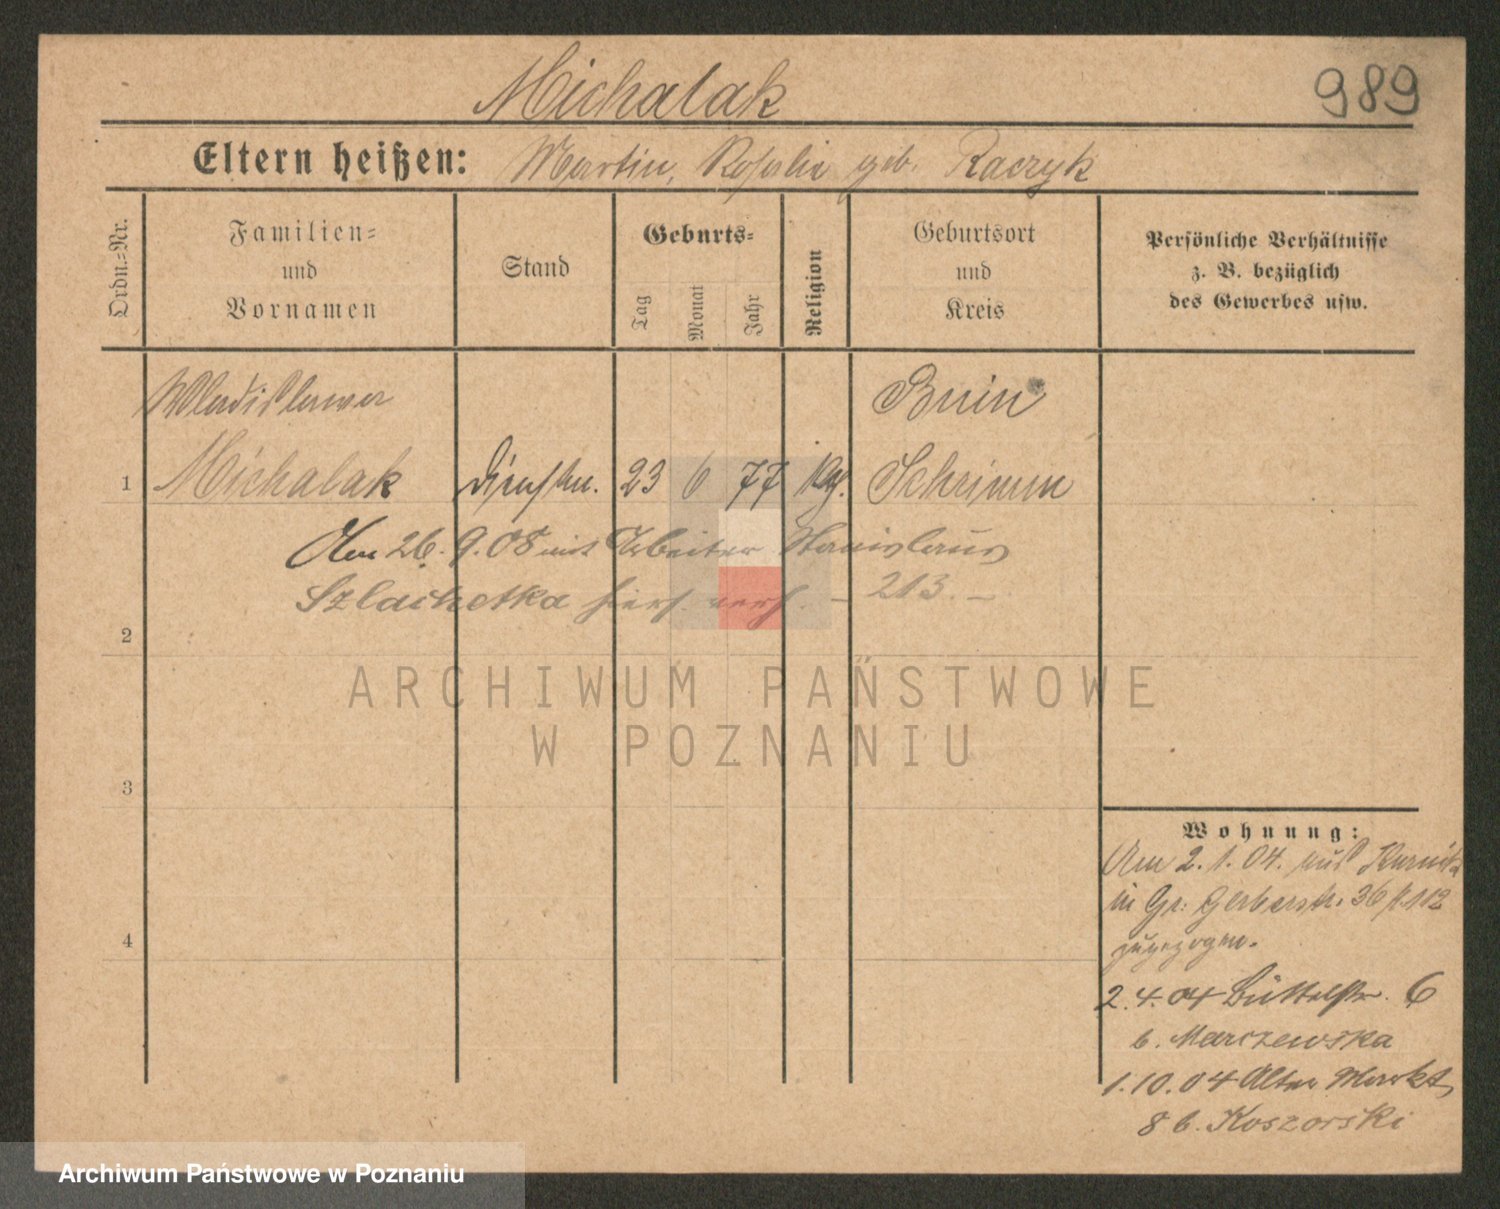 Michalak
989
Eltern heißen: Martin, Rosalie geb. Raczyk
Ordn.-Nr.
Familien-
und
Vornamen
Stand
Geburts-
Tag
Monat
Jahr
Religion
Geburtsort
und
Kreis
Persönliche Verhältnisse
z. B. bezüglich
des Gewerbes usw.
Wladislawa Bnin
1 Michalak Dienstm. 23 6 77 Kath. Schrimm
Am 26.9.08 mit Arbeiter Stanislaus
Szlachetka hiers. verh. - 213. -
2
ARCHIWUM PAŃSTWOWE
W POZNANIU
3
4
Wohnung:
Am 2.1.04. aus Kurnik
in Gr. Gerberstr. 36
zugezogen.
2.4.04 Büttelstr. 6
b. Marczewska
1.10.04 Alter Markt
8 b. Koszorski
Archiwum Państwowe w Poznaniu